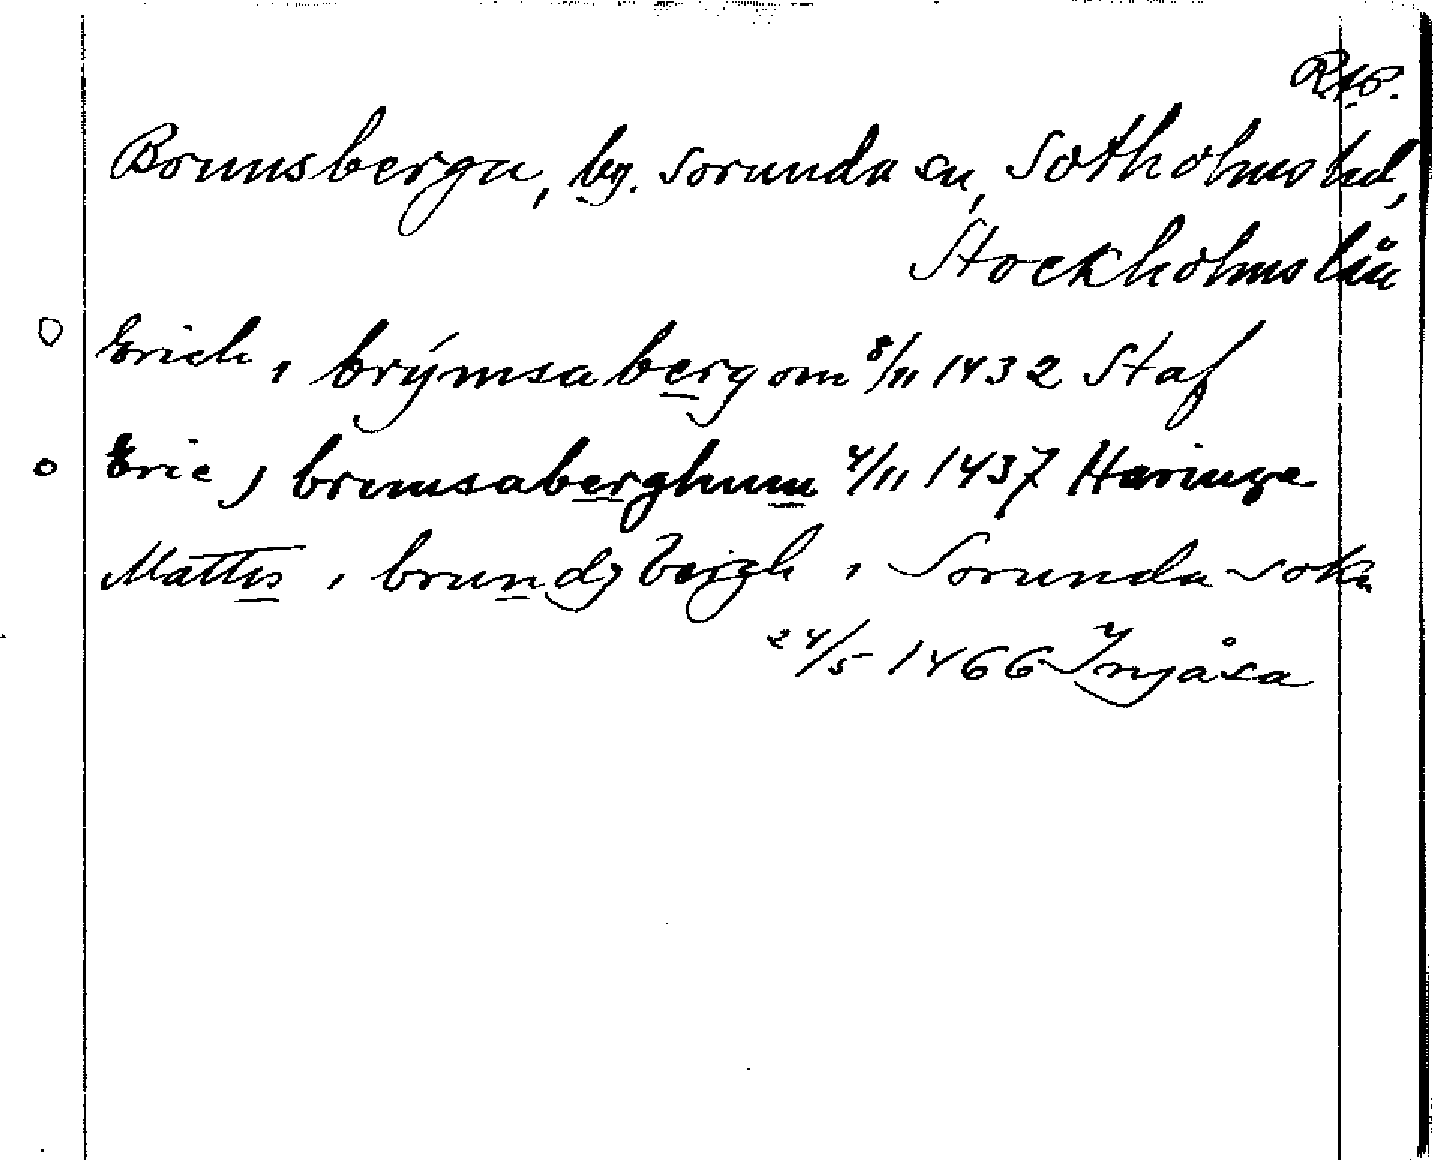 RAP.
Brunsberga, by. Sorunda sn, Sotholms hd,
Stockholms län
Erich, i brýmsabergom 8/11 1432 Staf
Eric j brumsaberghum 4/11 1437 Häringe
Mattis, i brundzbergh, i Sorunda sokn
24/5 1466